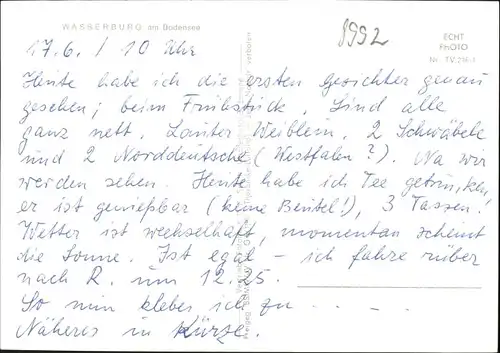 WASSERBURG am Bodensee
8992
ECHT
PHOTO
Nr. TV 216/1
17.6. / 10 Uhr
Heute habe ich die ersten Gesichter genau
gesehen; beim Frühstück. Sind alle
ganz nett. Lauter Weiblein. 2 Schwäbele
und 2 Norddeutsche (Westfalen?). Na wir
werden sehen. Heute habe ich Tee getrunken,
er ist genießbar (keine Beutel!), 3 Tassen!
Wetter ist wechselhaft, momentan scheint
die Sonne. Ist egal – ich fahre rüber
nach R. um 12.25.
So nun klebe ich zu . – . –
Näheres in Kürze.
verboten